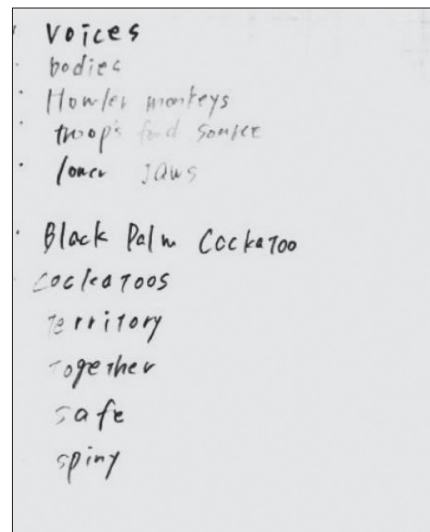 Voices
bodies
Howler monkeys
troop's food source
lower jaws
Black Palm Cockatoo
Cockatoos
Territory
Together
safe
spiny